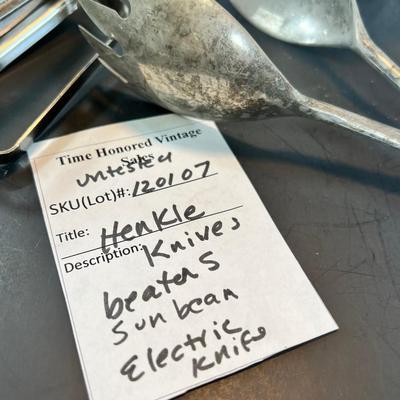 Time Honored Vintage
Sales
untested
SKU(Lot)#: 120107
Title: Henkle
Description: Knives
beaters
Sunbeam
Electric
Knife